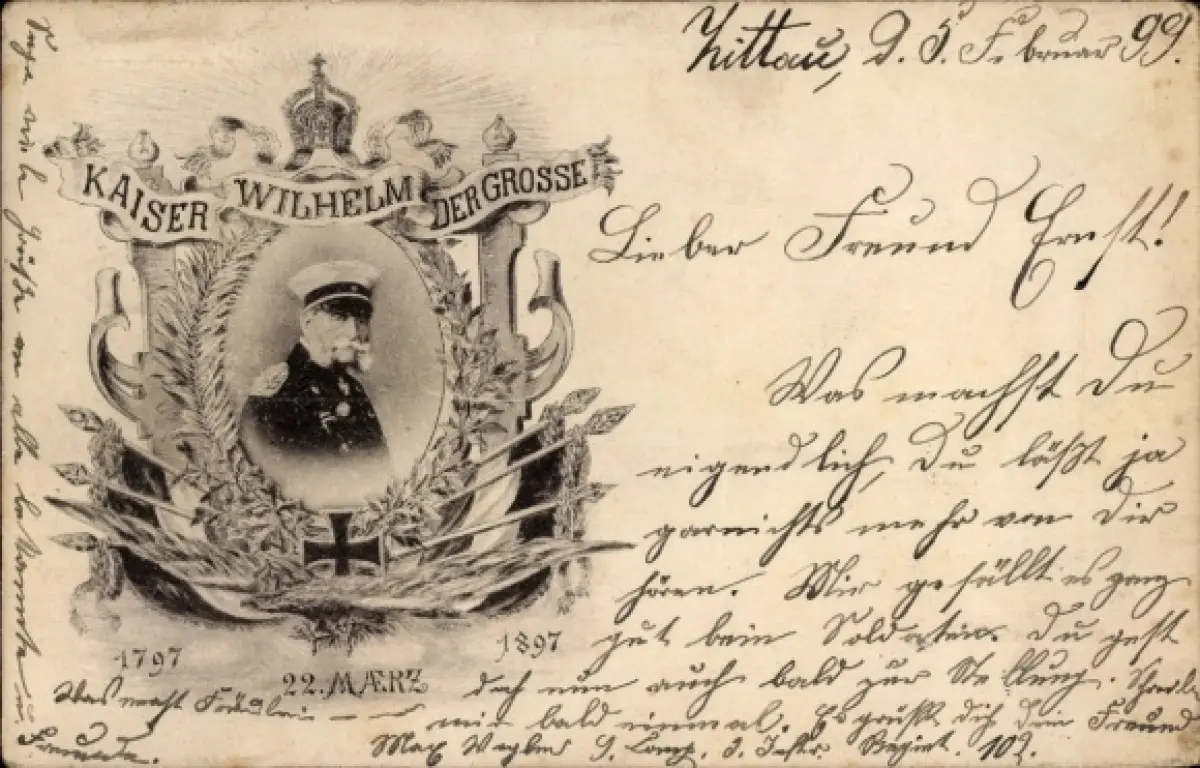 Zittau, d. 5. Februar 99.
KAISER WILHELM DER GROSSE
Lieber Freund Ernst!
Was machst Du
eigendlich, Du läßt ja
garnichts mehr von Dir
hören. Mir gefällt es ganz
gut beim Soldaten. Du gest
doch nun auch bald zur Stellung. Schreib
mir bald einmal. Es grüßt dich dein Freund
Max 9. Comp. 3. Inftr. Regimt. 102.
1797 1897
22. MÆRZ
Was macht Fräulein — —
viele Grüße an alle bekannte u.
Freunde.